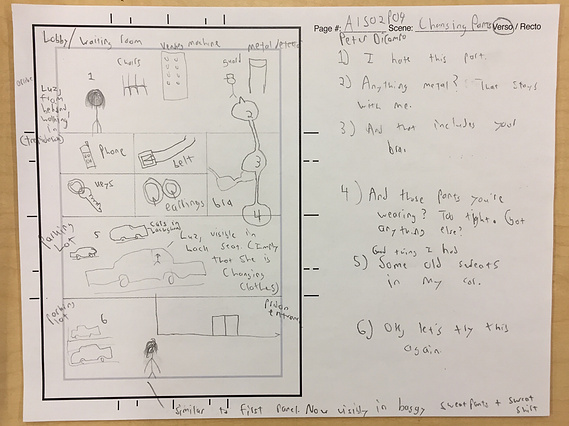 Page #: A1S02P04 Scene: Changing Pants Verso / Recto
Peter DiCampo
Lobby / Waiting room
Vending machine
metal detector
chairs
guard
1
Luz,
from
behind,
walking
in
2
phone
belt
3
keys
earrings
bra
4
Parking
Lot
5
cars in
background
Luz, visible in
back seat. (Imply
that she is
changing
clothes)
Parking
Lot
6
Prison
entrance
Similar to first panel. Now visibly in baggy sweatpants + sweat
shirt
1) I hate this part.
2) Anything metal? That stays
with me.
3) And that includes your
bra.
4) And those pants you're
wearing? Too tight. Got
anything else?
Good thing I had
5) Some old sweats
in my car.
6) OK, let's try this
again.